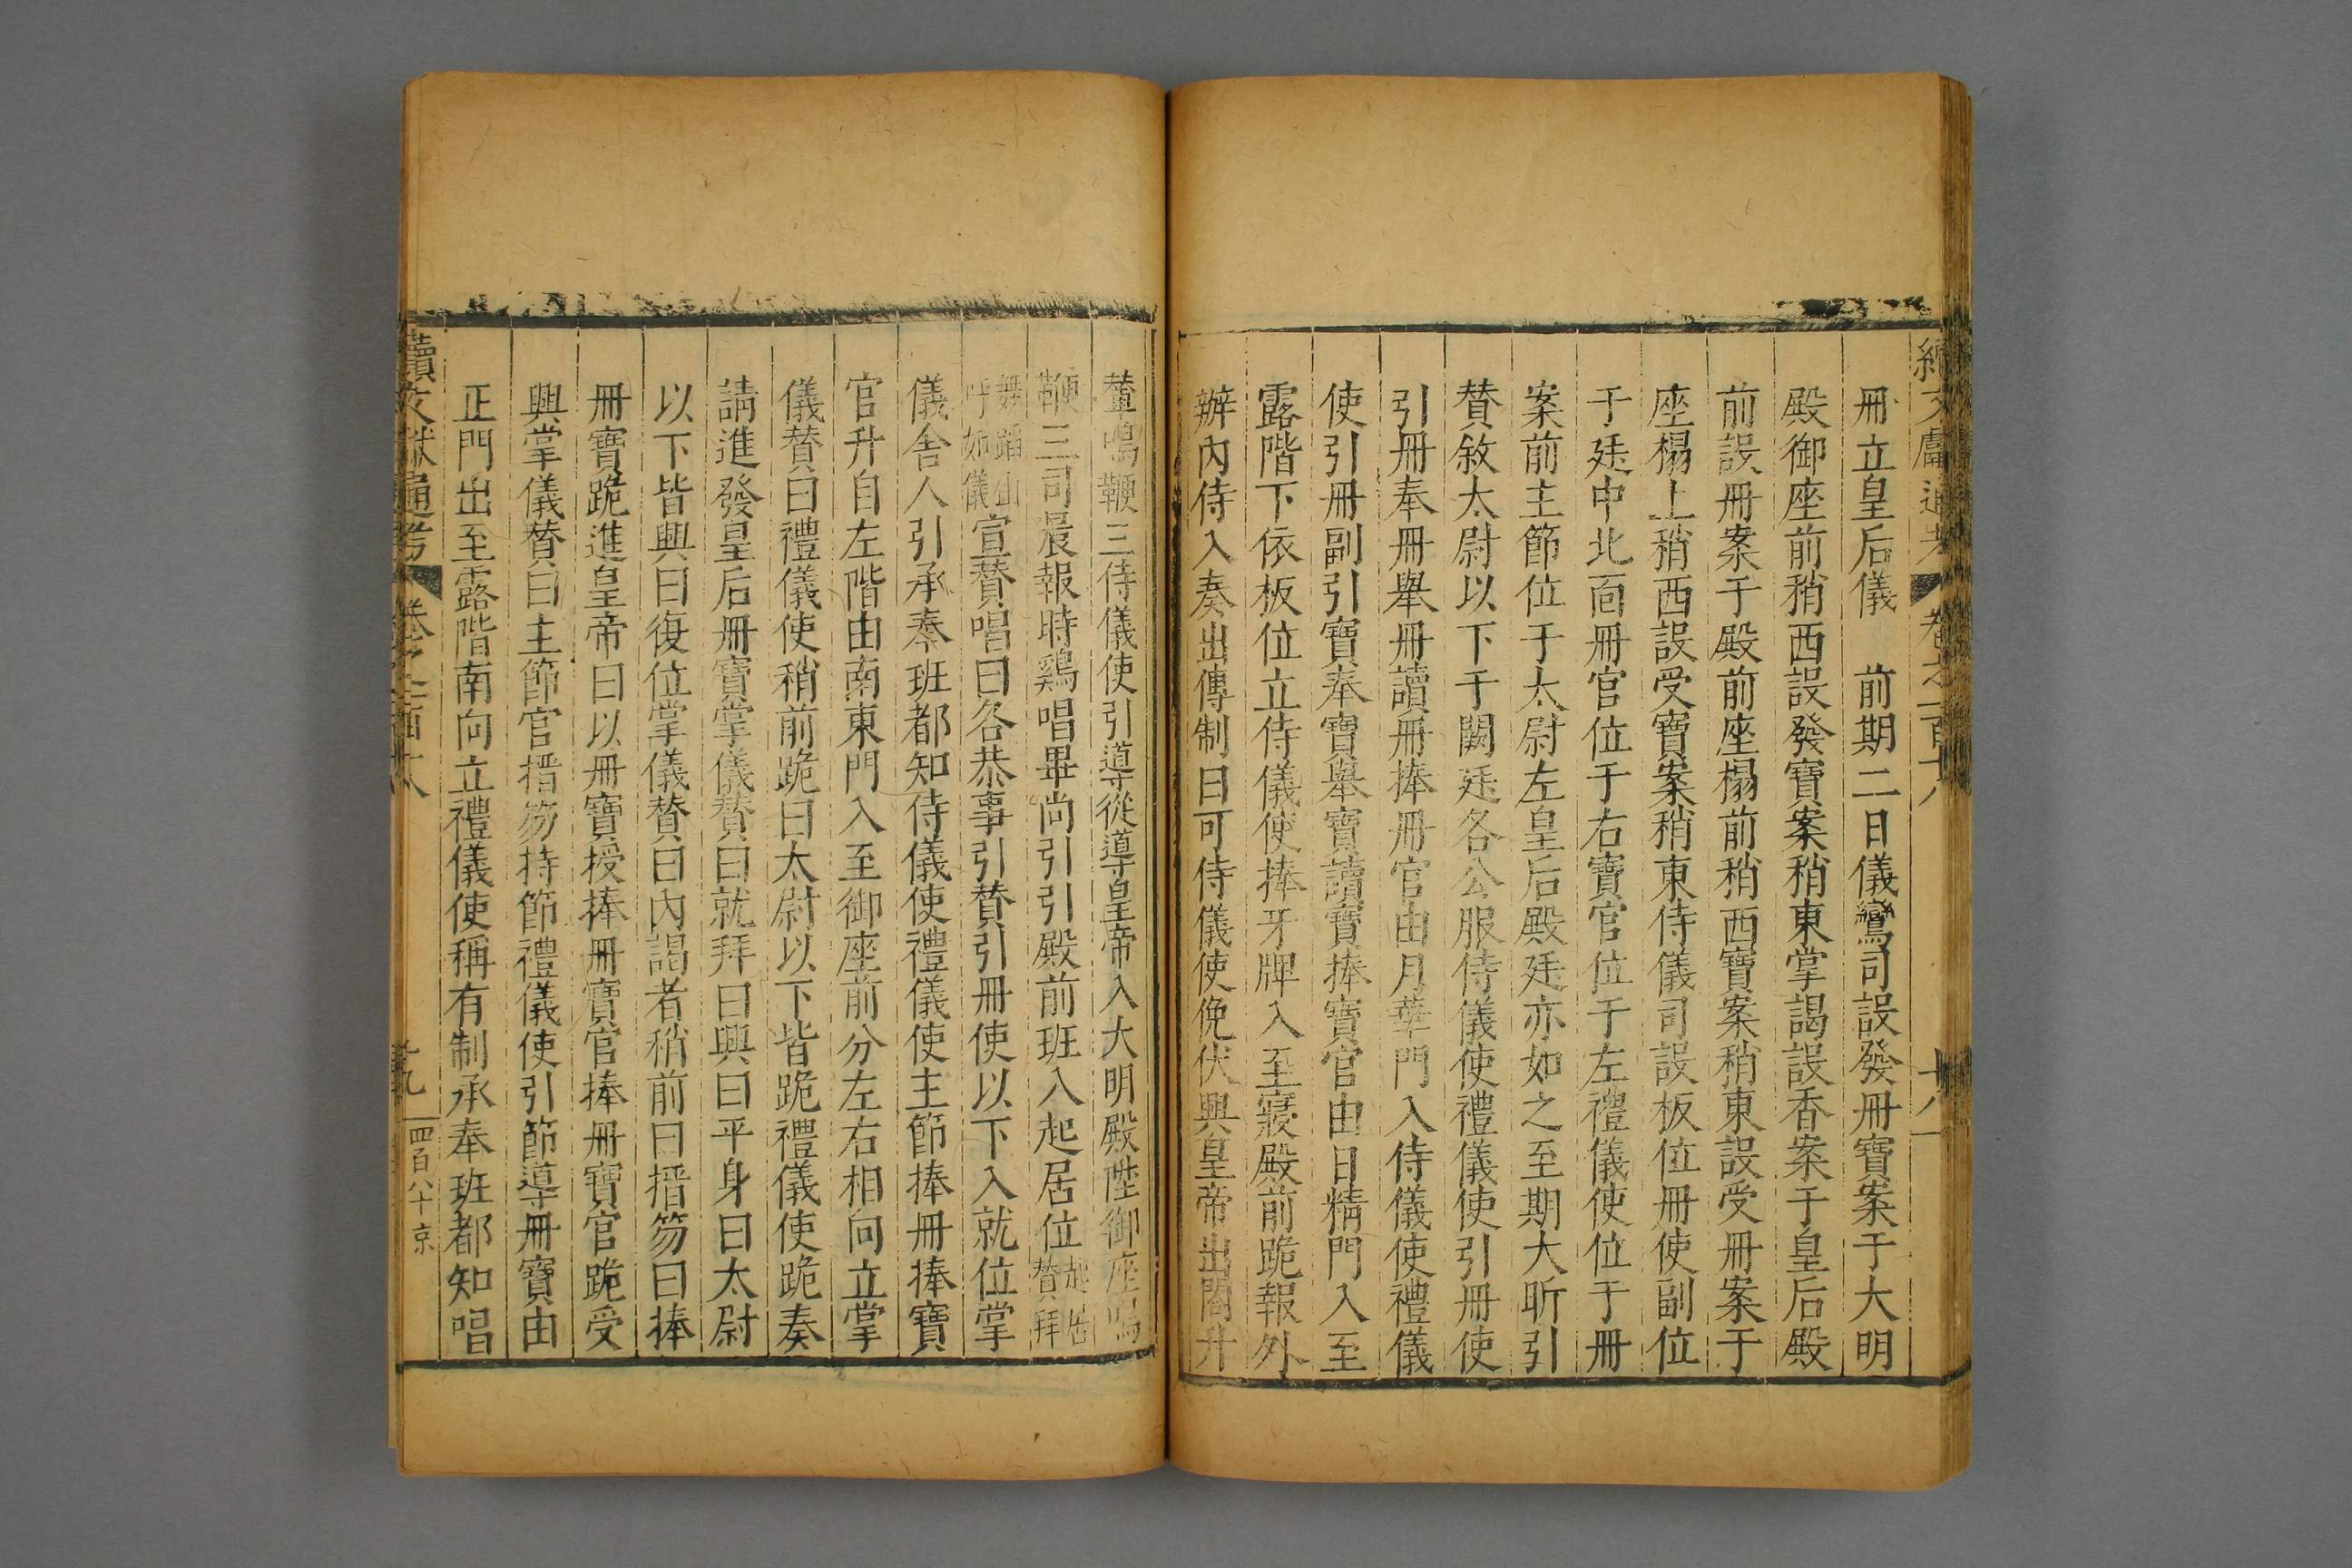 續文獻通考 卷之一百十八 十八
冊立皇后儀　前期二日儀鸞司設發冊寶案于大明
殿御座前稍西設發寶案稍東掌謁設香案于皇后殿
前設冊案于殿前座榻前稍西寶案稍東設受冊案于
座榻上稍西設受寶案稍東侍儀司設板位冊使副位
于廷中北面冊官位于右寶官位于左禮儀使位于冊
案前主節位于太尉左皇后殿廷亦如之至期大昕引
贊敘太尉以下于闕廷各公服侍儀使禮儀使引冊使
引冊奉冊舉冊讀冊捧冊官由月華門入侍儀使禮儀
使引冊副引寶奉寶舉寶讀寶捧寶官由日精門入至
露階下依板位立侍儀使捧牙牌入至寢殿前跪報外
辦內侍入奏出傳制曰可侍儀使俛伏興皇帝出閣升
輦鳴鞭三侍儀使引導從導皇帝入大明殿陞御座鳴
鞭三司晨報時鷄唱畢尚引引殿前班入起居位起居贊拜
舞蹈山呼如儀宣贊唱曰各恭事引贊引冊使以下入就位掌
儀舍人引承奉班都知侍儀使禮儀使主節捧冊捧寶
官升自左階由南東門入至御座前分左右相向立掌
儀贊曰禮儀使稍前跪曰太尉以下皆跪禮儀使跪奏
請進發皇后冊寶掌儀贊曰就拜曰興曰平身曰太尉
以下皆興曰復位掌儀贊曰內謁者稍前曰搢笏曰捧
冊寶跪進皇帝曰以冊寶授捧冊寶官捧冊寶官跪受
興掌儀贊曰主節官搢笏持節禮儀使引節導冊寶由
正門出至露階南向立禮儀使稱有制承奉班都知唱
續文獻通考 卷之一百十八 十九 四百八十 京